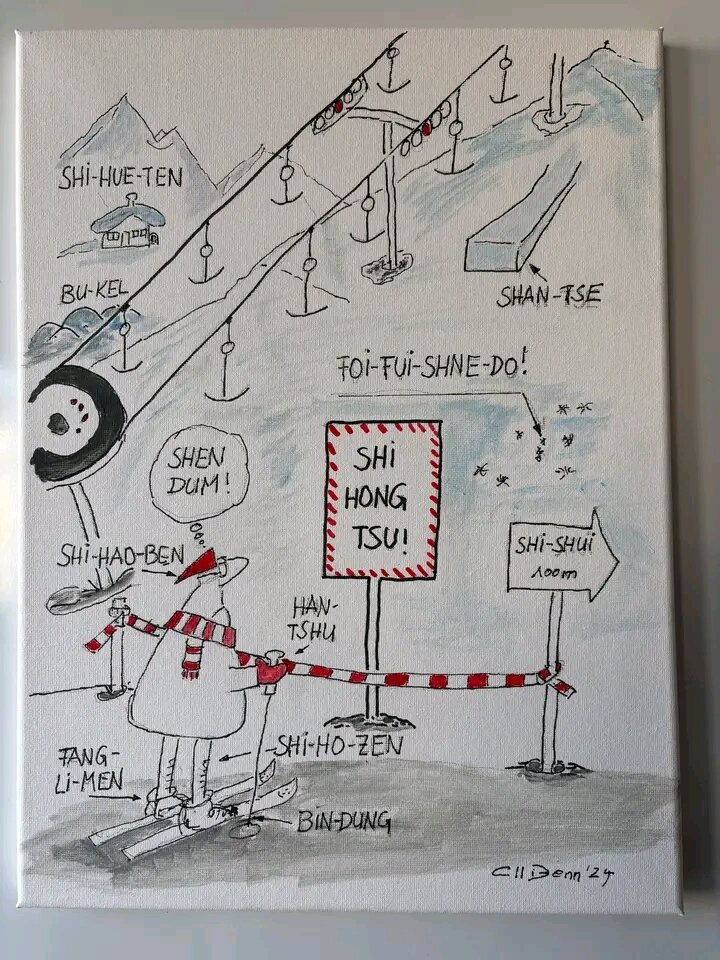 SHi-HUE-TEN
BU-KEL
SHAN-TSE
FOi-FUi-SHNE-DO!
SHEN
DUM!
SHi
HONG
TSU!
SHi-SHUi
room
SHi-HAO-BEN
HAN-
TSHU
SHi-HO-ZEN
FANG-
Li-MEN
BiN-DUNG